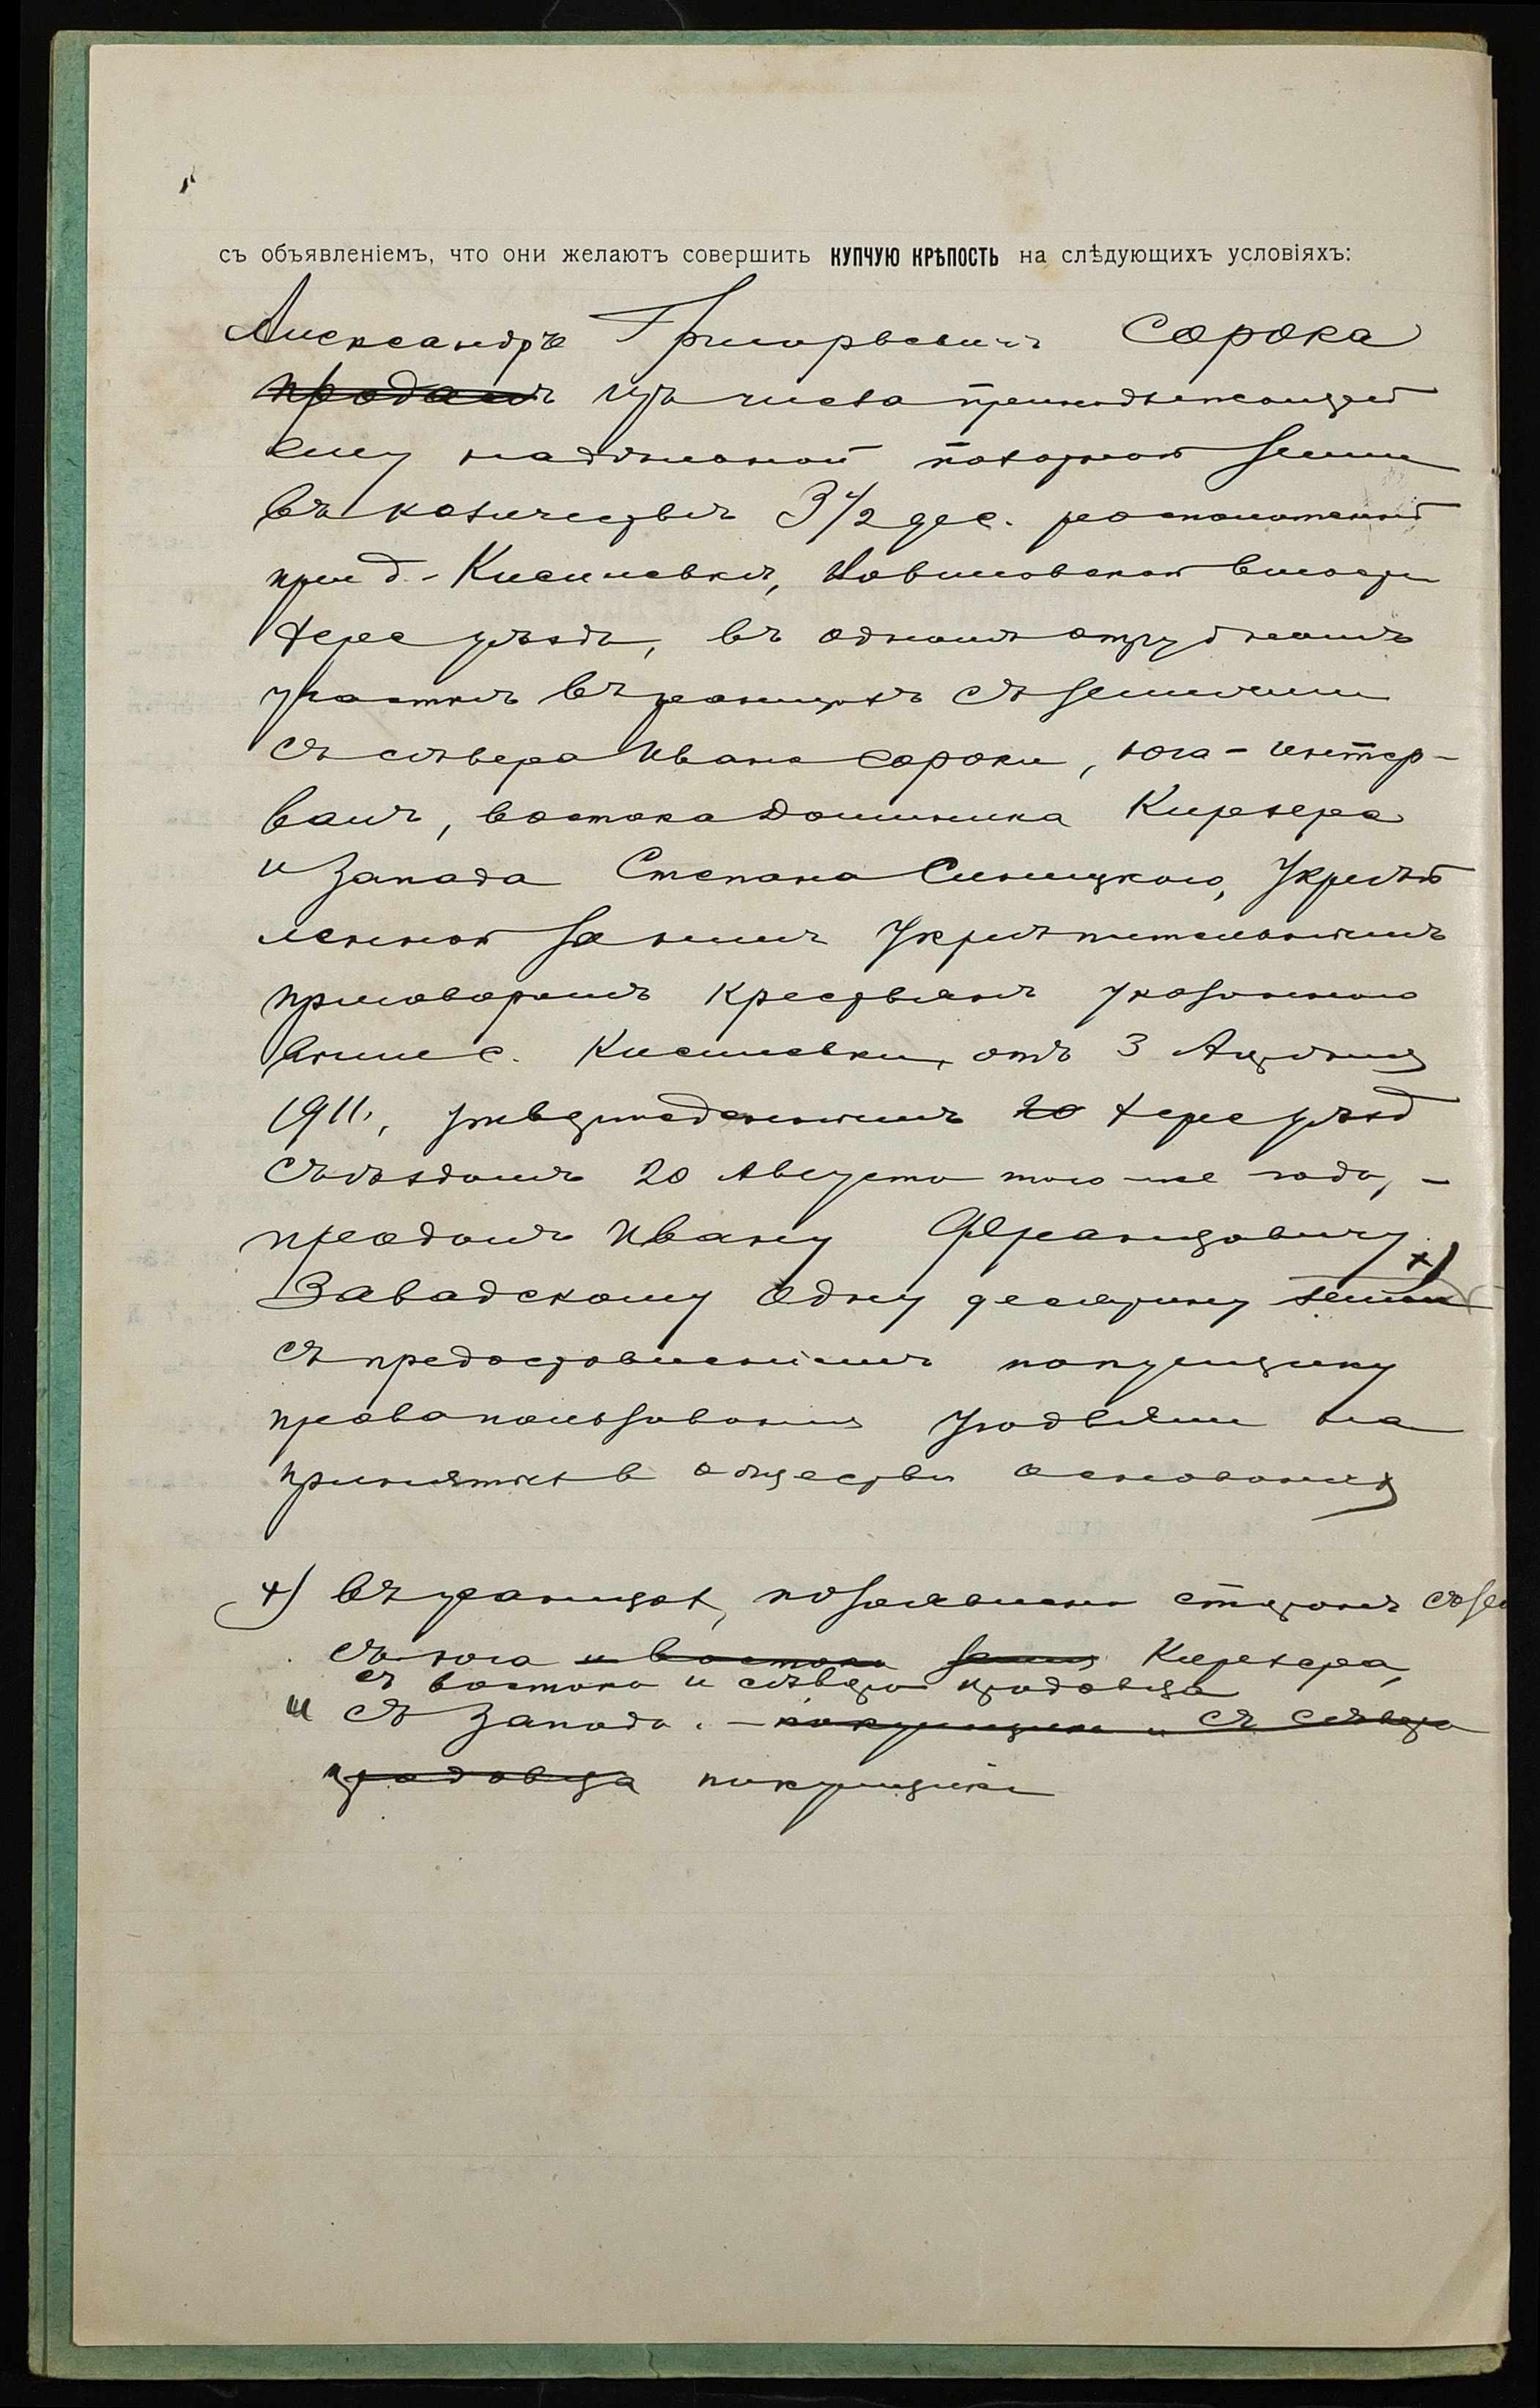 съ объявленіемъ, что они желаютъ совершить КУПЧУЮ КРѢПОСТЬ на слѣдующихъ условіяхъ:
Александръ Григорьевичъ Сорока
продалъ изъ числа принадлежащей
ему надѣльной пахарной земли
въ количествѣ 3 1/2 дес. расположенной
при д. Киселевкѣ, волости
Хере уѣзда, въ одномъ отрубномъ
участкѣ въ границахъ съ землями
съ сѣвера Ивана Сороки, юга - интер-
валъ, востока Доминика Кирхера
и запада Степана Синицкого, Укрѣп
ленной за нимъ Укрѣпительнымъ
приговоромъ крестьянъ указанного
выше с. Киселевки, отъ 3 Апрѣля
1911, утвержденнымъ 20 Хере уѣзд
Съѣздомъ 20 Августа того-же года, -
продалъ Ивану Францовичу
Завадскому одну десятину земли х)
съ предоставленіемъ покупщику
права пользованія угодьями на
принятыхъ в обществѣ основаніях
х) въ границах, по заявленію сторонъ съ зем
съ юга и востока земля Кирхера,
съ востока и сѣвера продавца
и съ запада. - покупщика и съ сѣвера
продавца покупщика